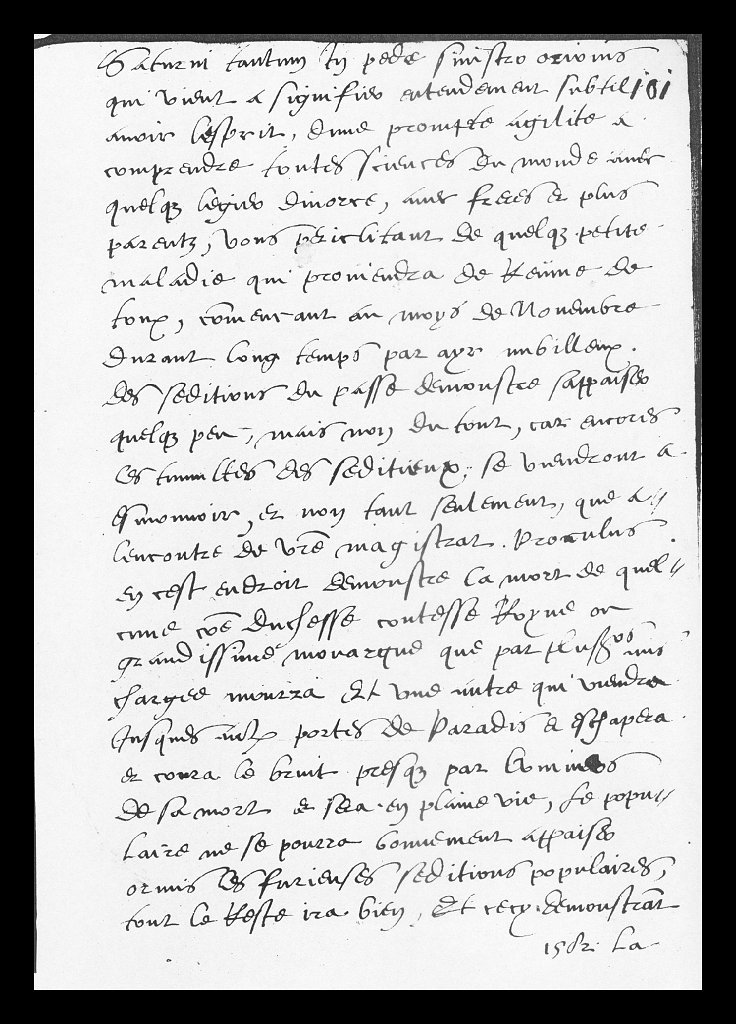 Saturni tantum In pede sinistro orionis
qui vient a signifier entendement subtil 101
avoir lesprit, dune prompte agilite a
comprendre toutes sciences du monde avec
quelq3 legier divorce, avec freres et plus
parentz, vous periclitant de quelq3 petite
maladie qui proviendra de Reume de
toux, cōmencant au moys de Novembre
durant long temps par ayr nubilleux.
des seditions du passe demonstre sappaiser
quelq3 peu, mais non du tout, car encores
les tumultes des seditieux, se viendront a
esmouvoir, et non tant seulement, que a
lencontre de vrē magistrat. Proculus
en cest endroit demonstre la mort de quel-
cune Duchesse contesse Royne ou
grandissime monarque que par plus ans
chargee mourra Et une autre qui viendra
Jusques aux portes de Paradis et eschapera
et coura le bruit presq3 par
de sa mort et sera en plaine vie, Le popu-
laire ne se pourra bonnement appaiser
ormis les furieuses seditions populaires,
tout le Reste ira bien, Et cecy demonstrāt
1582. La